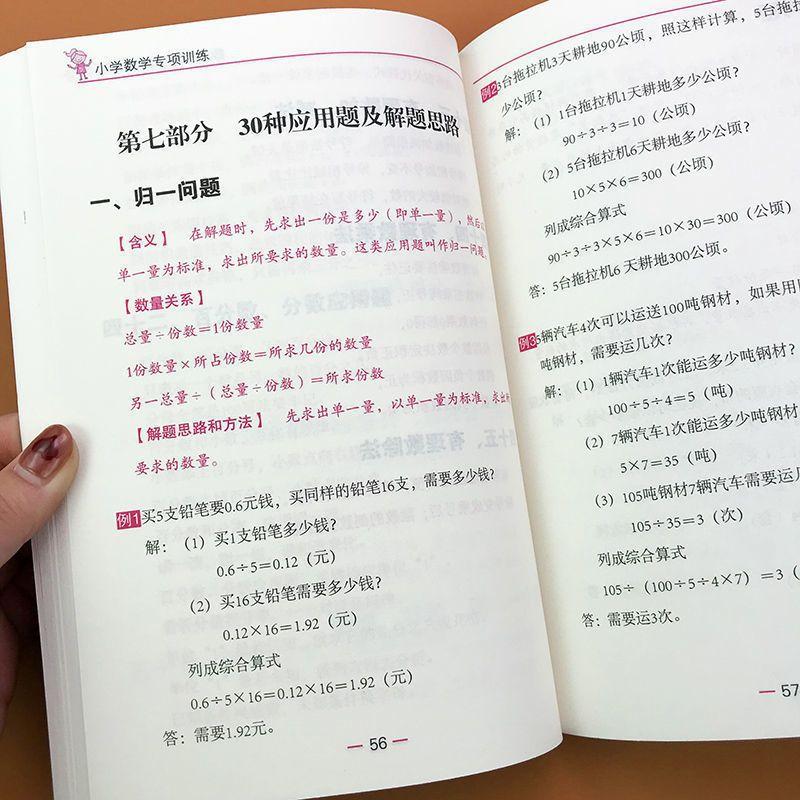 小学数学专项训练
第七部分 30种应用题及解题思路
一、归一问题
【含义】 在解题时，先求出一份是多少（即单一量），然后
单一量为标准，求出所要求的数量。这类应用题叫作归一问题。
【数量关系】
总量÷份数＝1份数量
1份数量×所占份数＝所求几份的数量
另一总量÷（总量÷份数）＝所求份数
【解题思路和方法】 先求出单一量，以单一量为标准，求出所
要求的数量。
例1 买5支铅笔要0.6元钱，买同样的铅笔16支，需要多少钱？
解：（1）买1支铅笔多少钱？
0.6÷5＝0.12（元）
（2）买16支铅笔需要多少钱？
0.12×16＝1.92（元）
列成综合算式
0.6÷5×16＝0.12×16＝1.92（元）
答：需要1.92元。
56
例2 3台拖拉机3天耕地90公顷，照这样计算，5台拖
少公顷？
解：（1）1台拖拉机1天耕地多少公顷？
90÷3÷3＝10（公顷）
（2）5台拖拉机6天耕地多少公顷？
10×5×6＝300（公顷）
列成综合算式
90÷3÷3×5×6＝10×30＝300（公顷）
答：5台拖拉机6 天耕地300公顷。
例3 5辆汽车4次可以运送100吨钢材，如果用同
吨钢材，需要运几次？
解：（1）1辆汽车1次能运多少吨钢材？
100÷5÷4＝5（吨）
（2）7辆汽车1次能运多少吨钢材
5×7＝35（吨）
（3）105吨钢材7辆汽车需要运
105÷35＝3（次）
列成综合算式
105÷（100÷5÷4×7）＝3（
答：需要运3次。
57